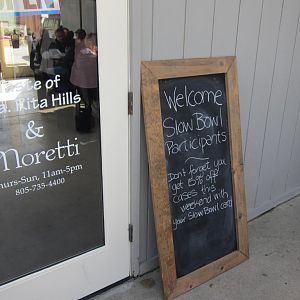 Taste of
Sta. Rita Hills
&
Moretti
Thurs-Sun, 11am-5pm
805-735-4400
Welcome
Slow Bowl
Participants
Don't forget you
get 15% off
cases this
weekend with
your Slow Bowl card